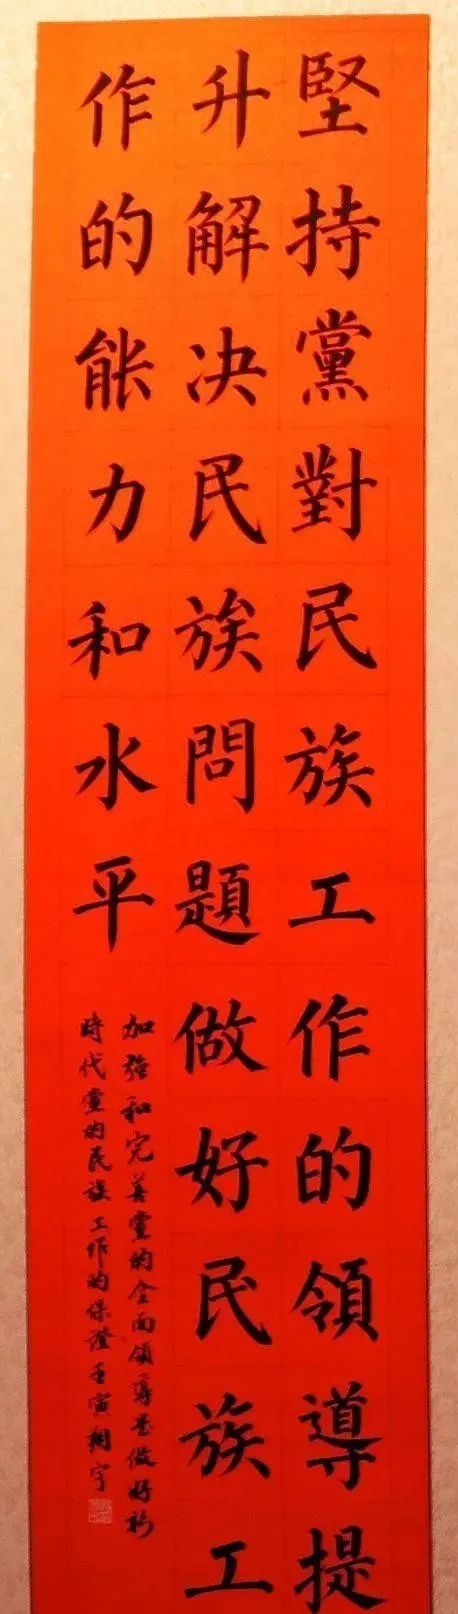 堅持黨對民族工作的領導提
升解决民族問題做好民族工
作的能力和水平
加强和完善黨的全面領導是做好新
時代黨的民族工作的保證壬寅翔宇